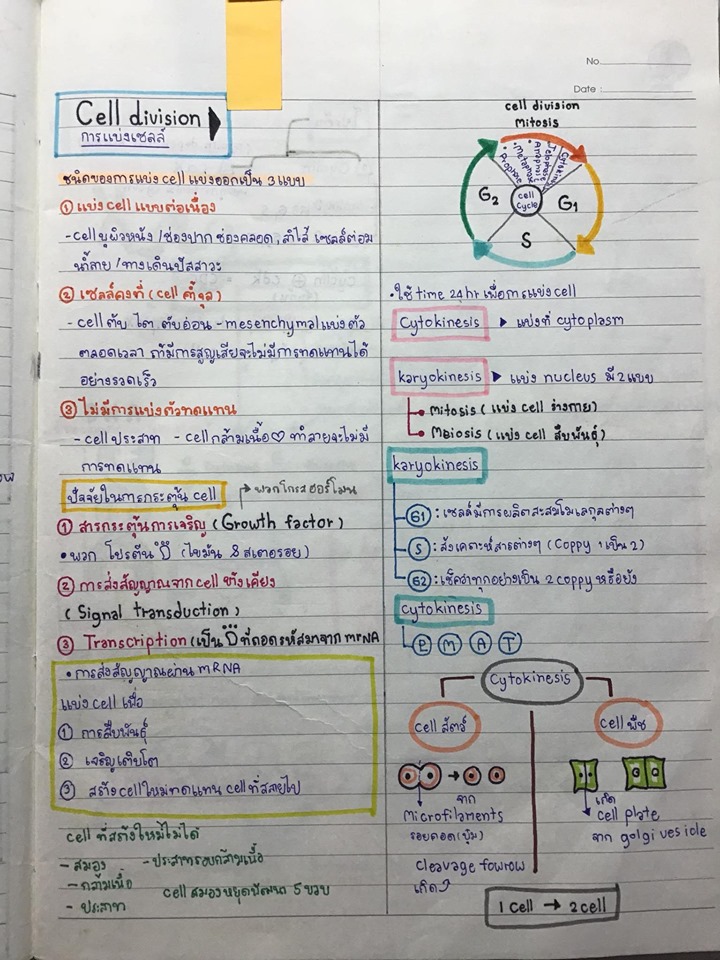 No.
Date :
Cell division
การแบ่งเซลล์
ชนิดของการแบ่ง cell แบ่งออกเป็น 3 แบบ
① แบ่ง cell แบบต่อเนื่อง
- cell บุผิวหนัง / ช่องปาก ช่องคลอด, ลำไส้ เซลล์ต่อม
น้ำลาย / ทางเดินปัสสาวะ
② เซลล์คงที่ (cell ค้ำจุล)
- cell ตับ ไต ตับอ่อน - mesenchymal แบ่งตัว
ตลอดเวลา ถ้ามีการสูญเสียจะไม่มีการทดแทนได้
อย่างรวดเร็ว
③ ไม่มีการแบ่งตัวทดแทน
- cell ประสาท - cell กล้ามเนื้อ♡ ทำลายจะไม่มี
การทดแทน
ปัจจัยในการกระตุ้น cell
พวกโกรสฮอร์โมน
① สารกระตุ้นการเจริญ (Growth factor)
• พวก โปรตีน (ไขมัน & สเตอรอย)
② การส่งสัญญาณจาก cell ข้างเคียง
(Signal transduction)
③ Transcription (เป็น ที่ถอดรหัสมาจาก mRNA
• การส่งสัญญาณผ่าน mRNA
แบ่ง cell เพื่อ
① การสืบพันธุ์
② เจริญเติบโต
③ สร้าง cell ใหม่ทดแทน cell ที่สลายไป
cell ที่สร้างใหม่ไม่ได้
- สมอง - ประสาทรอบกล้ามเนื้อ
- กล้ามเนื้อ
cell สมองหยุดพัฒนา 5 ขวบ
- ประสาท
cell division
Mitosis
• Prophase
• Metaphase
Anaphase
Telophase
Cytokinesis
G2
cell
cycle
G1
S
• ใช้ time 24 hr เพื่อการแบ่ง cell
Cytokinesis ▶ แบ่งที่ cytoplasm
karyokinesis ▶ แบ่ง nucleus มี 2 แบบ
Mitosis (แบ่ง cell ร่างกาย)
Meiosis (แบ่ง cell สืบพันธุ์)
karyokinesis
G1 : เซลล์มีการผลิตสะสมโมเลกุลต่างๆ
S : สังเคราะห์สารต่างๆ (Coppy 1 เป็น 2)
G2 : เช็คว่าทุกอย่างเป็น 2 coppy หรือยัง
Cytokinesis
P M A T
Cytokinesis
Cell สัตว์
Cell พืช
จาก
Microfilaments
รอยคอด (บุ๋ม)
Cleavage fowrow
เกิด
เกิด
cell plate
จาก golgi vesicle
1 cell → 2 cell